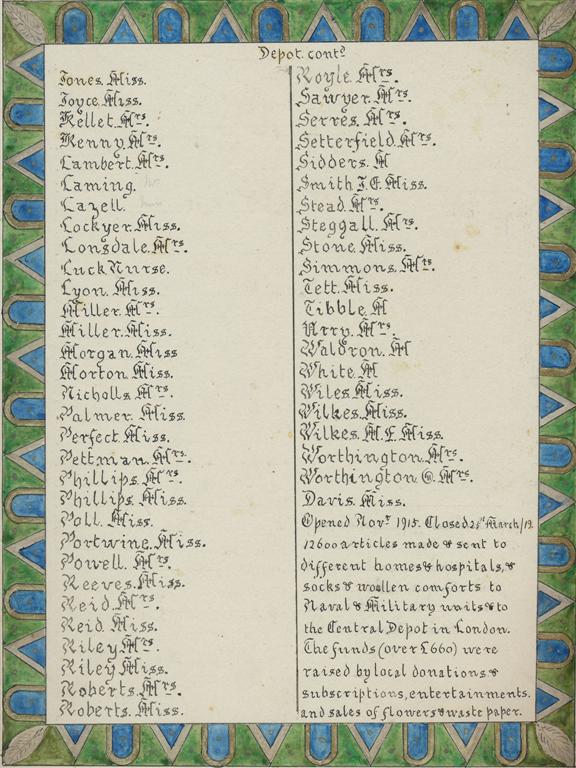 Depot. cont.d
Jones. Miss.
Joyce. Miss.
Kellet. Mrs.
Kenny. Mrs.
Lambert. Mrs.
Laming.
Lazell.
Lockyer. Miss.
Lonsdale. Mrs.
Luck Nurse.
Lyon. Miss.
Miller. Mrs.
Miller. Miss.
Morgan. Miss
Morton. Miss.
Nicholls. Mrs.
Palmer. Miss
Perfect. Miss.
Pettman. Mrs.
Phillips. Mrs.
Phillips. Miss.
Poll. Miss.
Portwine. Miss.
Powell. Mrs.
Reeves. Miss.
Reid. Mrs.
Reid. Miss.
Riley. Mrs.
Riley. Miss.
Roberts. Mrs.
Roberts. Miss.
Royle. Mrs.
Sawyer. Mrs.
Serres. Mrs.
Setterfield. Mrs.
Sidders. M
Smith J. E. Miss.
Stead. Mrs.
Steggall. Mrs.
Stone. Miss.
Simmons. Mrs.
Tett. Miss.
Tibble. M
Urry. Mrs.
Waldron. M
White. M
Wiles. Miss.
Wilkes. Miss.
Wilkes. M. E. Miss.
Worthington. Mrs.
Worthington Mrs.
Davis. Miss.
Opened Novr 1915. Closed March/19.
12600 articles made & sent to
different homes & hospitals, &
socks & wollen comforts to
Naval & Military units & to
the Central Depot in London.
The funds (over £660) were
raised by local donations &
subscriptions, entertainments.
and sales of flowers & waste paper.